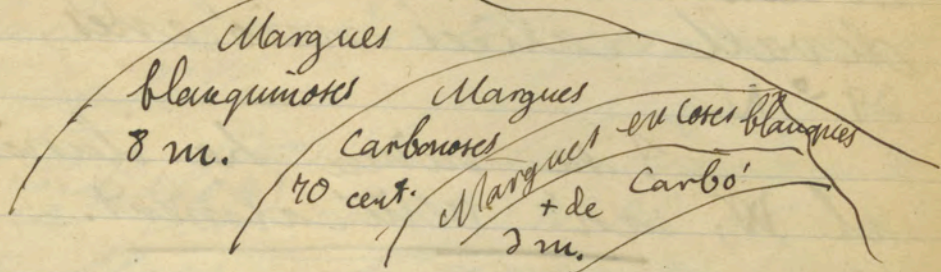 Margues
blanquinoses
8 m.
Margues
Carbonoses
70 cent.
Margues en coses blanques
Carbó
+ de
3 m.